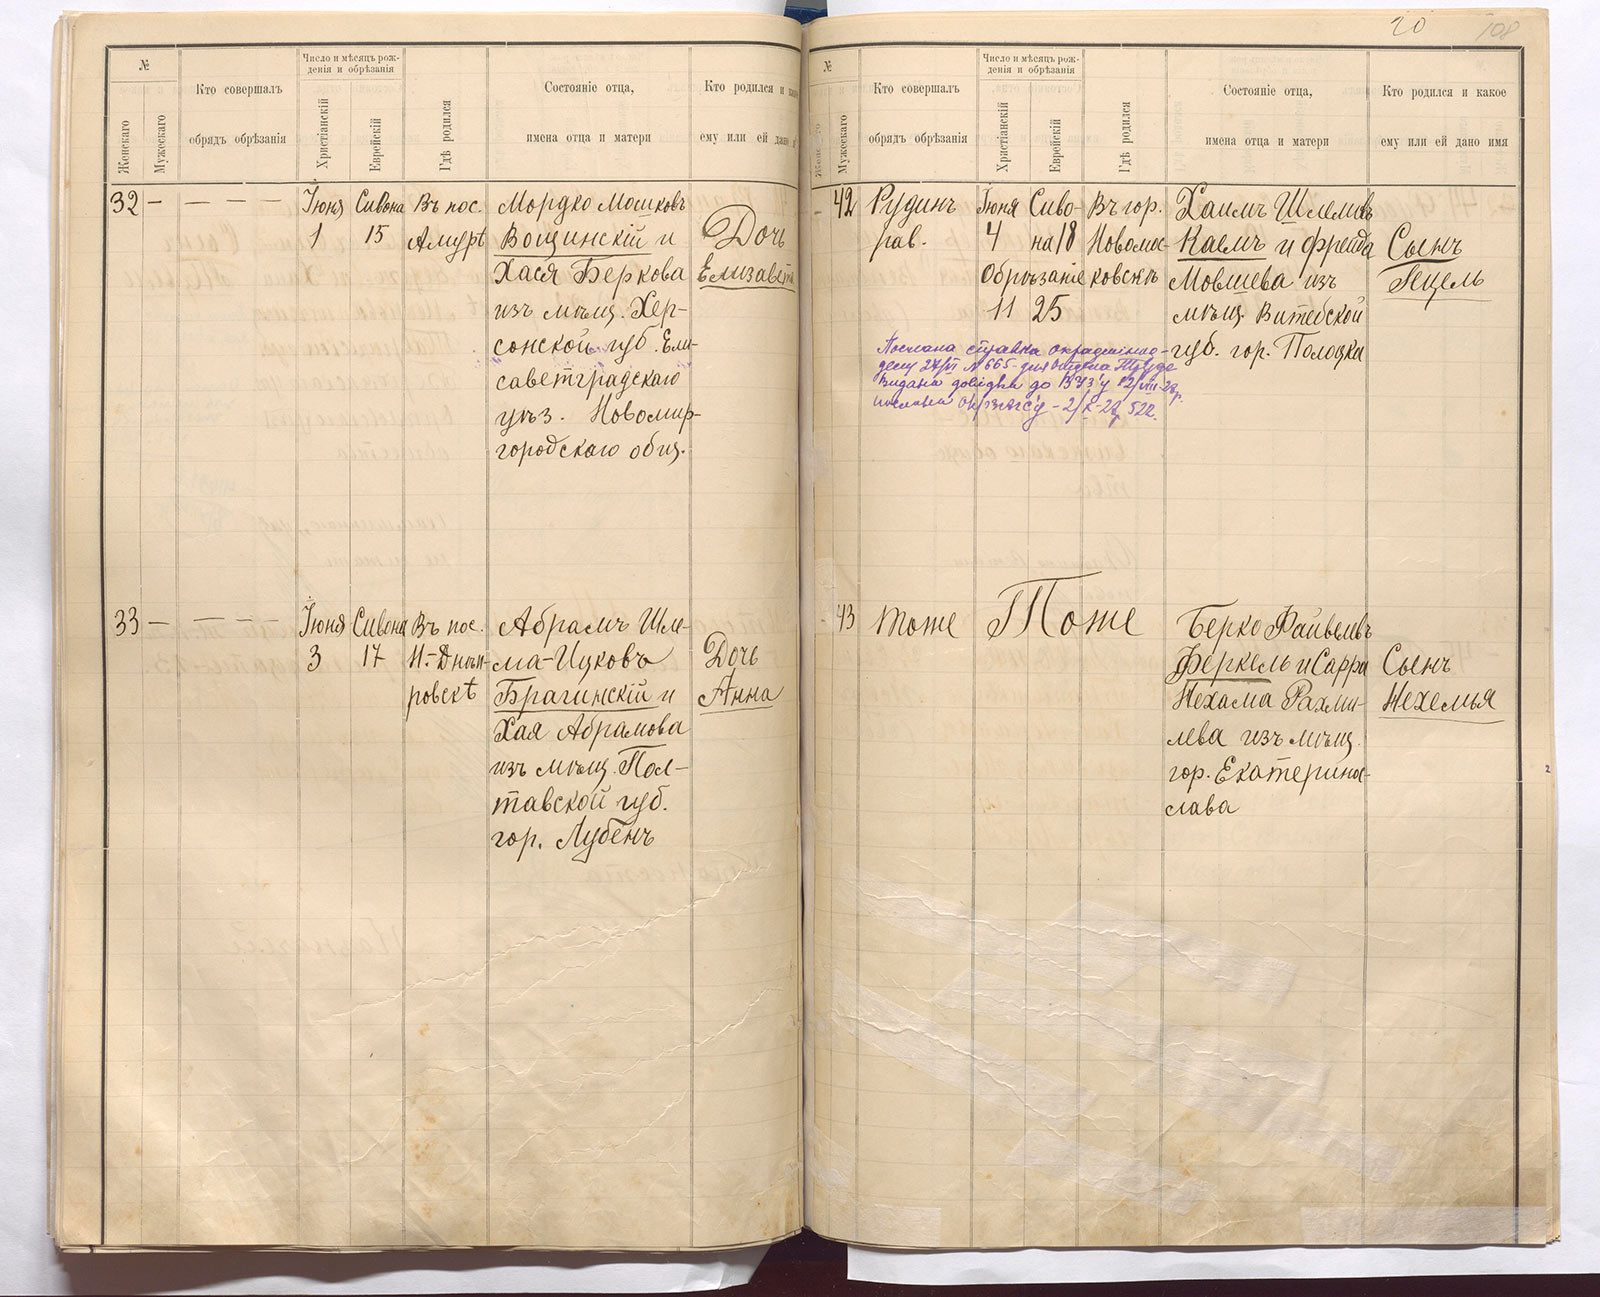 20 108
№
Женскаго
Мужескаго
Кто совершалъ
обрядъ обрѣзанія
Число и мѣсяцъ рож-
денія и обрѣзанія
Христіанскій
Еврейскій
Гдѣ родился
Состояніе отца,
имена отца и матери
Кто родился и
ему или ей дано
32 — — — — —
Іюня
1
Сивона
15
Въ пос.
Амурѣ
Мордко Мошковъ
Вощинскій и
Хася Беркова
изъ мѣщ. Хер-
сонской губ. Ели-
саветградскаго
уѣз. Новомир-
городскаго общ.
Дочь
Елизавета
33 — — — — —
Іюня
3
Сивона
17
Въ пос.
Н.-Днѣп-
ровскѣ
Абрамъ Шле-
ма-Ицковъ
Брагинскій и
Хая Абрамова
изъ мѣщ. Пол-
тавской губ.
гор. Лубенъ
Дочь
Анна
№
Женскаго
Мужескаго
Кто совершалъ
обрядъ обрѣзанія
Число и мѣсяцъ рож-
денія и обрѣзанія
Христіанскій
Еврейскій
Гдѣ родился
Состояніе отца,
имена отца и матери
Кто родился и какое
ему или ей дано имя
— 42
Рудинъ
рав.
Іюня
4
Обрѣзаніе
11
Сиво-
на 18
25
Въ гор.
Новомос-
ковскѣ
Хаимъ Шлемовъ
Каемъ и Фрейда
Мовшева изъ
мѣщ. Витебской
губ. гор. Полоцка
Сынъ
Гецель
Послана справка
27/VI № 665 - для
Видана довідка до ВУЗ'у 12/VIII-28р.
послана - 2/X-28 522.
— 43
тоже
Тоже
Берко Файвелевъ
Феркель и Сарра
Нехама Рахми-
лева изъ мѣщ.
гор. Екатерино-
слава
Сынъ
Нехемья